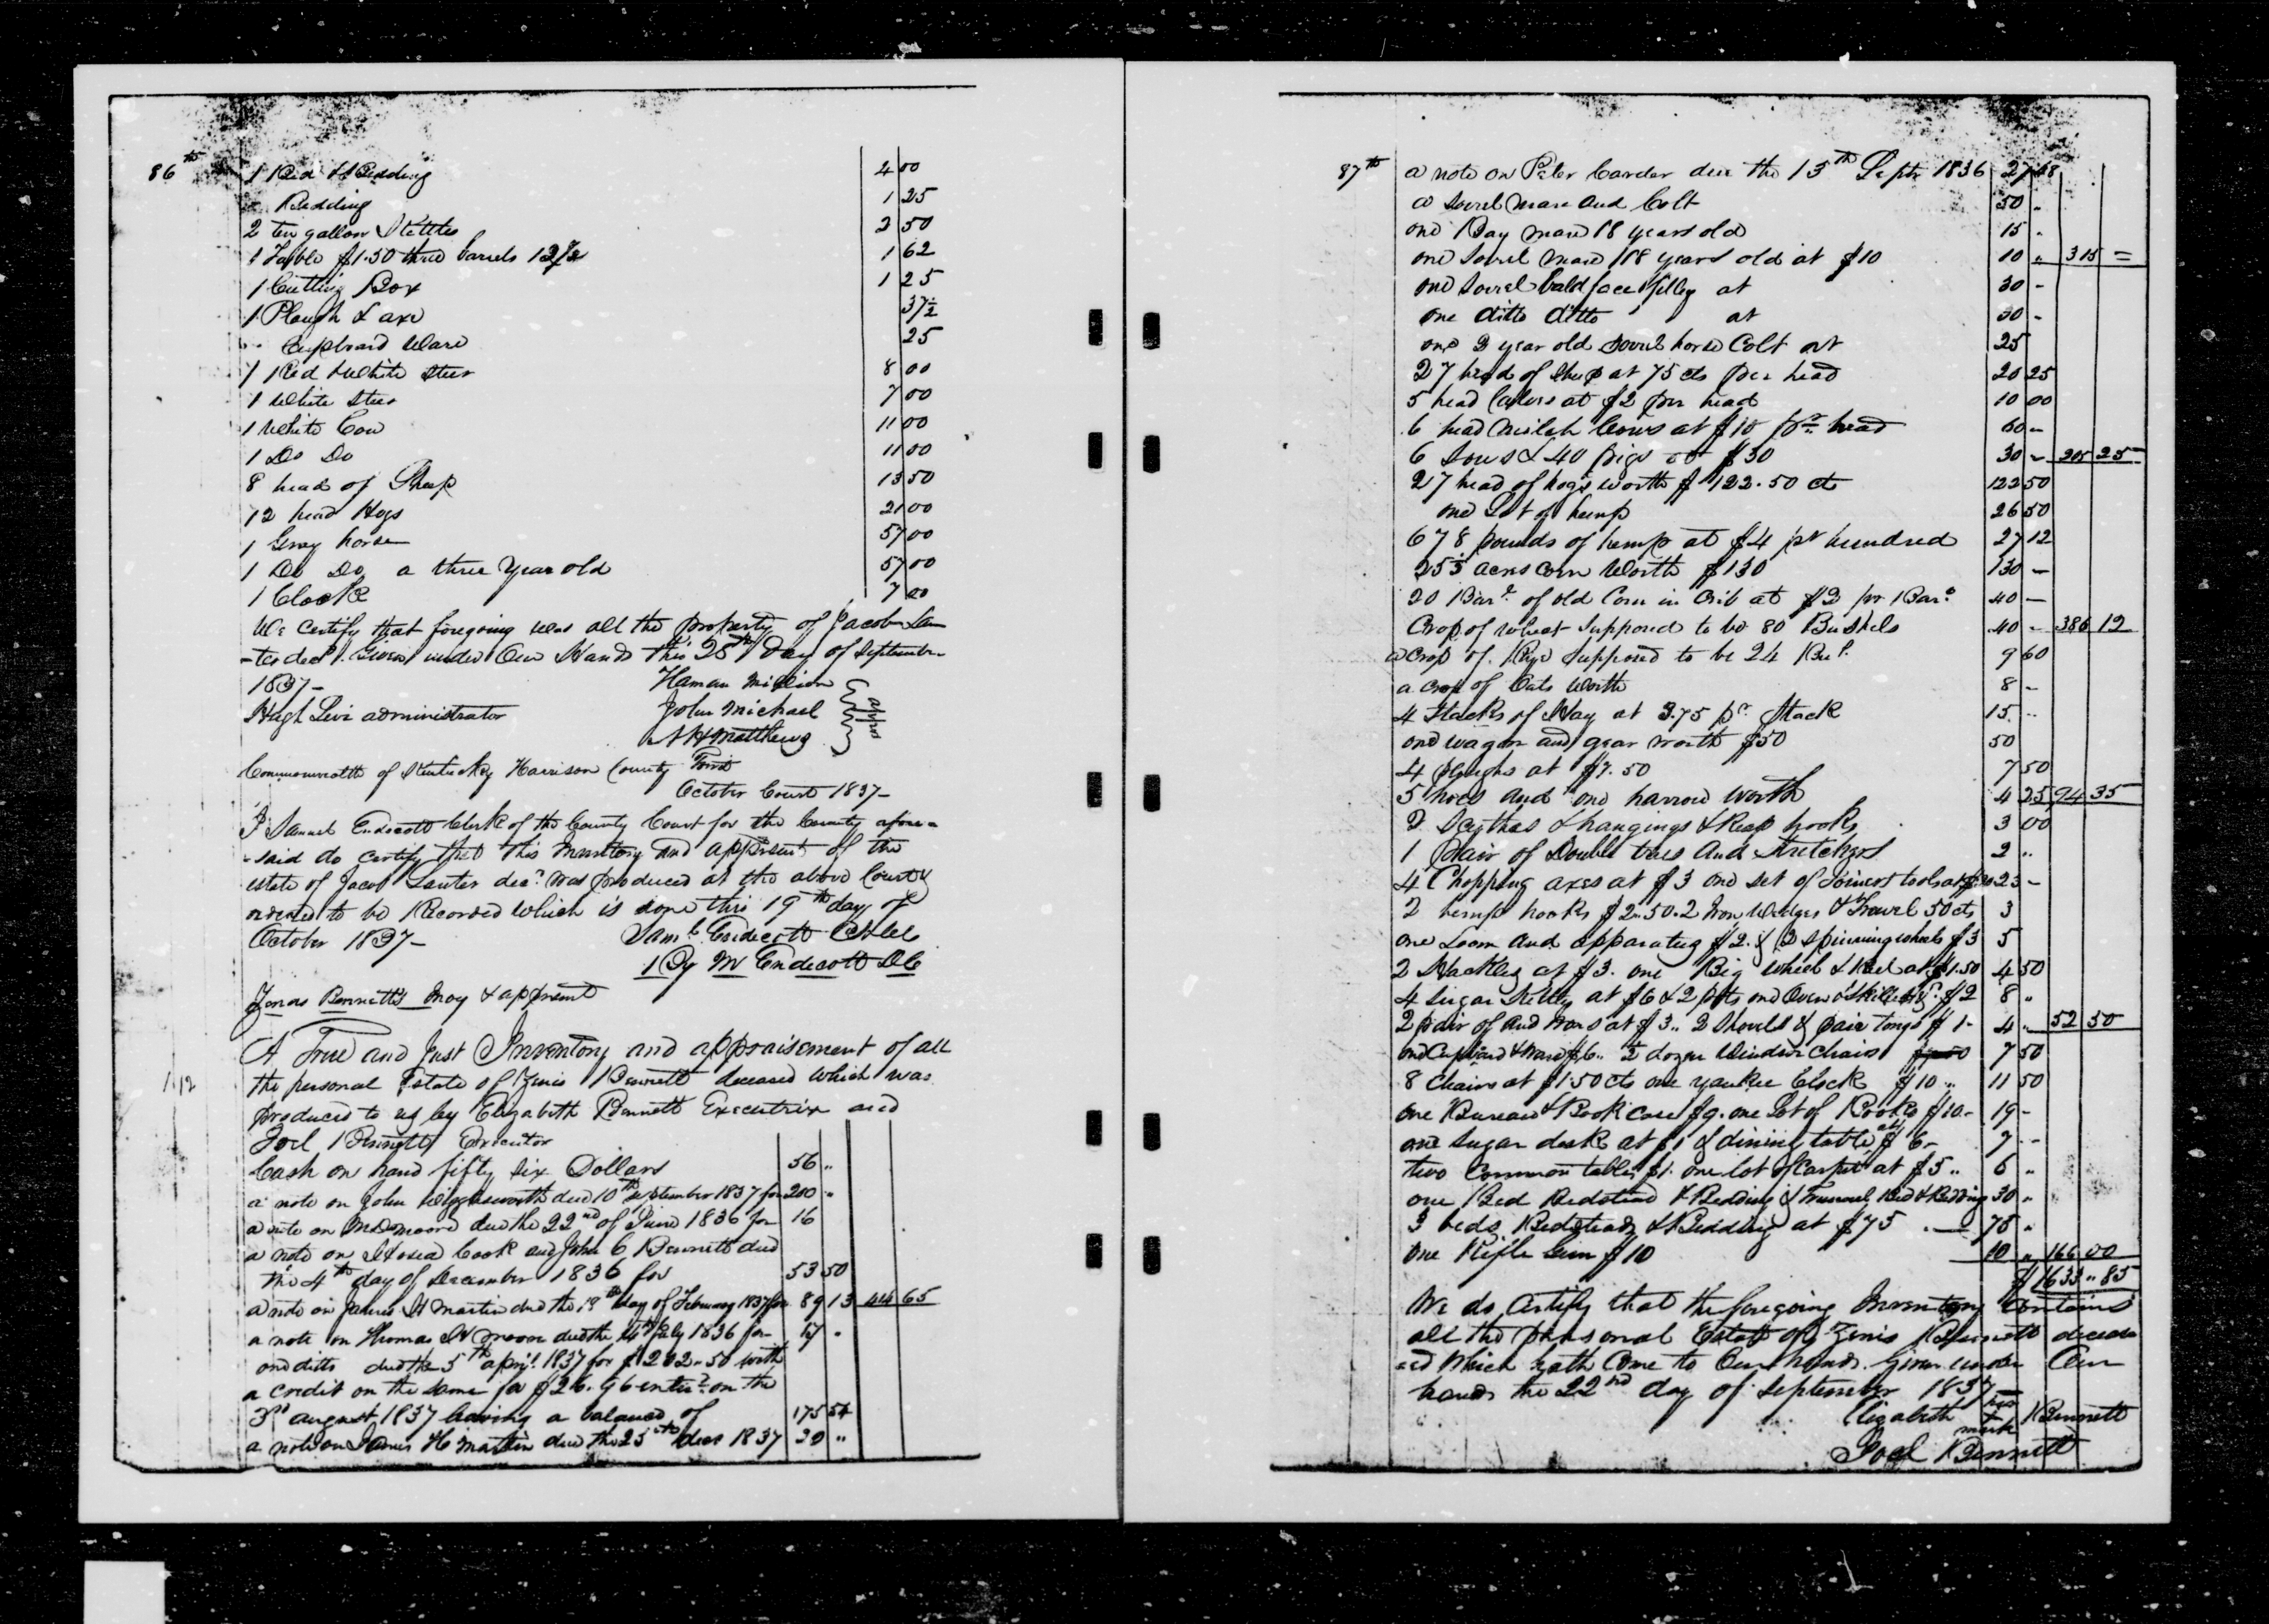 86th
1 Bed & Bedding 4 00
" Bedding 1 25
2 ten gallon Kettles 2 50
1 Table $1.50 three barrels 12½ 1 62
1 Cutting Box 1 25
1 Plough & axe 37½
" Cupboard Ware 25
1 Red & White Steer 8 00
1 White Steer 7 00
1 White Cow 11 00
1 Do Do 11 00
8 head of Sheep 13 50
12 head Hogs 21 00
1 Gray horse 57 00
1 Do Do a three year old 57 00
1 Clock 7 00
We Certify that foregoing was all the property of Jacob San
-ter decd. Given under Our Hands this 25th Day of September
1837- Haman Million
Hugh Levi administrator John Michael apprs
A H Matthews
Commonwealth of Kentucky Harrison County
October Court 1837-
I Samuel Endecott Clerk of the County Court for the County afore-
-said do certify that this Inventory and appresmt of the
estate of Jacob Santer decd. was produced at the above Court &
ordered to be Recorded which is done this 19th day of
October 1837- Saml. Endecott Clk
By M Endecott DC
Zenas Bennett's Invoy & appresmt
A True and Just Inventory and appraisement of all
the personal Estate of Zenis Bennett deceased which was
produced to us by Elizabeth Bennett Executrix and
Joel Bennett Executor
Cash on hand fifty six Dollars 56 "
a note on John Wigglesworth due 10th September 1837 for 200 "
a note on moore due the 22nd of June 1836 for 16
a note on Hosea Cook and John C Bennett due
the 4th day of December 1836 for 53 50
a note on James H Martin due the 19th day of February 1837 for 89 13 414 65
a note on Thomas H Moore due the 4th July 1836 for 57 "
one ditto due the 5th april 1837 for $202-50 with
a credit on the same for $26.96 on the
3rd august 1837 leaving a balance of 175 54
a note on James H. Martin due the 25th decr 1837 30 "
87th
a note on Peter Carder due the 13th Septr 1836 27 48
a Sorrel Mare and Colt 50 "
one Bay mare 18 years old 15 "
one Sorrel mare 18 years old at $10 10 " 315 =
one Sorrel baldface filley at 30 -
one ditto ditto at 30 -
one 2 year old Sorrel horse Colt at 25
27 head of Sheep at 75 cts per head 20 25
5 head Calves at $2 per head 10 00
6 head Milch Cows at $10 pr. head 60 -
6 Sows & 40 pigs at $30 30 - 205 25
27 head of hogs worth $122.50 cts 122 50
one Lot of hemp 26 50
678 pounds of hemp at $4 pr hundred 27 12
25 acres Corn Worth $130 130 -
20 Barl. of old Corn in Crib at $2 pr Barl. 40 -
Crop of Wheat Supposed to be 80 Bushels 40 - 386 12
a crop of Rye Supposed to be 24 Bul. 9 60
a Crop of Oats Worth 8 -
4 Stacks of Hay at 3.75 pr Stack 15 "
one wagon and gear worth $50 50
4 ploughs at $7.50 7 50
5 hoes and one harrow worth 4 25 94 35
2 Scythes & hangings & Reap hooks 3 00
1 pair of Double trees And Stretchers 2 "
4 Chopping axes at $3 one set of Joiners tools at $20 23 -
2 hemp hooks $2.50. 2 Iron Wedges & Trowel 50 cts 3
one Loom and apparatus $2. & 2 spinning wheels $3 5
2 Hackles at $3. one Big Wheel & Reel at $1.50 4 50
4 Sugar Kettles at $6 & 2 pots one Oven & Skillet $2 8 "
2 pair of And Irons at $3.. 2 Shovels & pair tongs $1- 4 " 52 50
one Cupboard & Ware $6.. ½ dozen Windsor Chairs 7 50
8 Chairs at $1.50 cts one yankee Clock $10 " 11 50
one Bureau & Book Case $9. one Lot of Books $10- 19 -
one Sugar desk at $1 & dining table at $6- 7 --
two Common tables $1. one lot of Carpet at $5.. 6 "
one Bed Bedstead & Bedding & Trunnel Bed & Bedding 30 "
3 beds Bedsteads & Bedding at $75 .- 75 "
one Rifle Gun $10 10 " 166 00
$1633 " 85
We do Certify that the foregoing Inventory Contains
all the personal Estate of Zenis Bennett deceas
-ed which hath Come to Our hands. Given under Our
hands the 22nd day of September 1837-
Elizabeth her mark Bennett
Joel Bennett